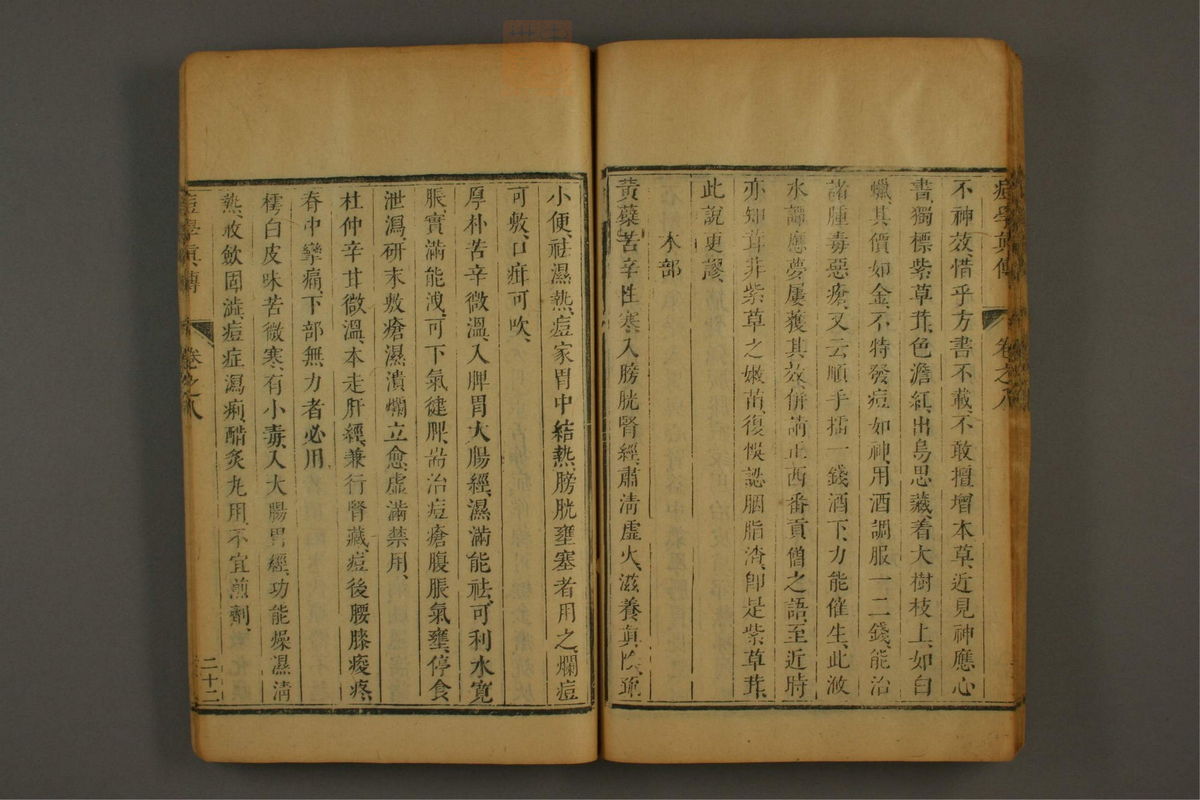 痘學真傳 卷之八
不神效、惜乎方書不載、不敢擅增本草、近見神應心
書、獨標紫草茸、色澹紅、出烏思藏、着大樹枝上、如白
蠟、其價如金、不特發痘如神、用酒調服一二錢、能治
諸腫毒惡瘡、又云順手擂一錢酒下、力能催生、此波
水謳應夢、屢獲其效、併講正西番貢僧之語、至近時
亦知茸非紫草之嫩苗、復悞認胭脂渣、卽是紫草茸、
此說更謬、
木部
黃蘗苦辛性寒、入膀胱腎經、肅清虛火、滋養眞陰、通
小便、祛濕熱、痘家胃中結熱、膀胱壅塞者用之、爛痘
可敷、口疳可吹、
厚朴苦辛微溫、入脾胃大腸經、濕滿能祛、可利水寬
脹、實滿能洩、可下氣健脾、耑治痘瘡腹脹氣壅、停食
泄瀉、研末敷瘡濕潰爛立愈、虛滿禁用、
杜仲辛甘微溫、本走肝經、兼行腎藏、痘後腰膝痠疼、
脊中攣痛、下部無力者必用
樗白皮味苦微寒、有小毒、入大腸胃經、功能燥濕淸
熱、收歛固澁、痘症瀉痢、醋炙丸用、不宜煎劑、
痘學眞傳 卷之八 二十二